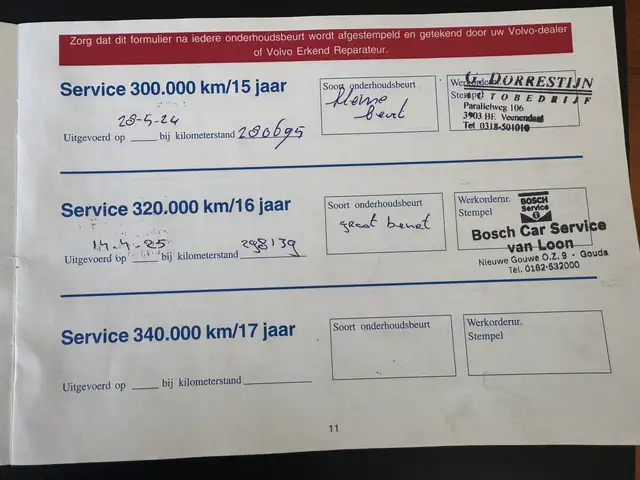 Zorg dat dit formulier na iedere onderhoudsbeurt wordt afgestempeld en getekend door uw Volvo-dealer
of Volvo Erkend Reparateur.
Service 300.000 km/15 jaar
Soort onderhoudsbeurt
kleine
beurt
Werkordernr.
Stempel
G. DORRESTIJN
AUTOBEDRIJF
Parallelweg 106
3903 BE Veenendaal
Tel 0318-501010
28-5-24
280695
Uitgevoerd op bij kilometerstand
Service 320.000 km/16 jaar
Soort onderhoudsbeurt
groot beurt
Werkordernr.
Stempel
BOSCH
Service
Bosch Car Service
van Loon
Nieuwe Gouwe O.Z. 9 - Gouda
Tel. 0182-532000
14-4-25
298139
Uitgevoerd op bij kilometerstand
Service 340.000 km/17 jaar
Soort onderhoudsbeurt
Werkordernr.
Stempel
Uitgevoerd op bij kilometerstand
11